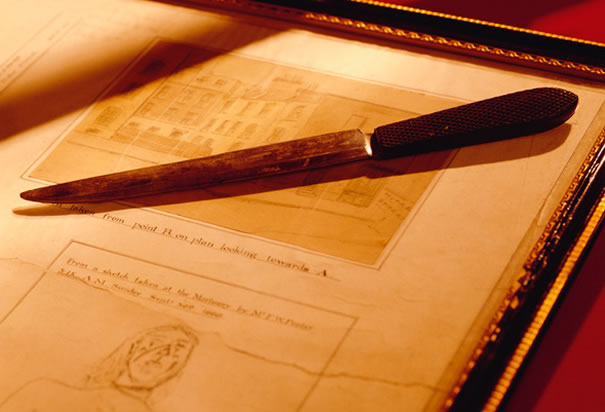 taken from point H on plan looking towards A
From a sketch taken at the Mortuary by Mr F. W. Foster
A.M. Sunday Sept